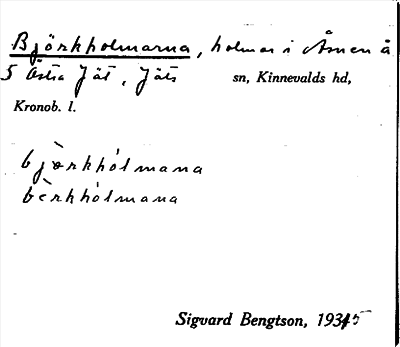 Björkholmarna, holmar i Åsnen å
5 Östra Jät, Jäts sn, Kinnevalds hd,
Kronob. l.
bjò̀rkhólmana
bèrkhólmana
Sigvard Bengtson, 1935